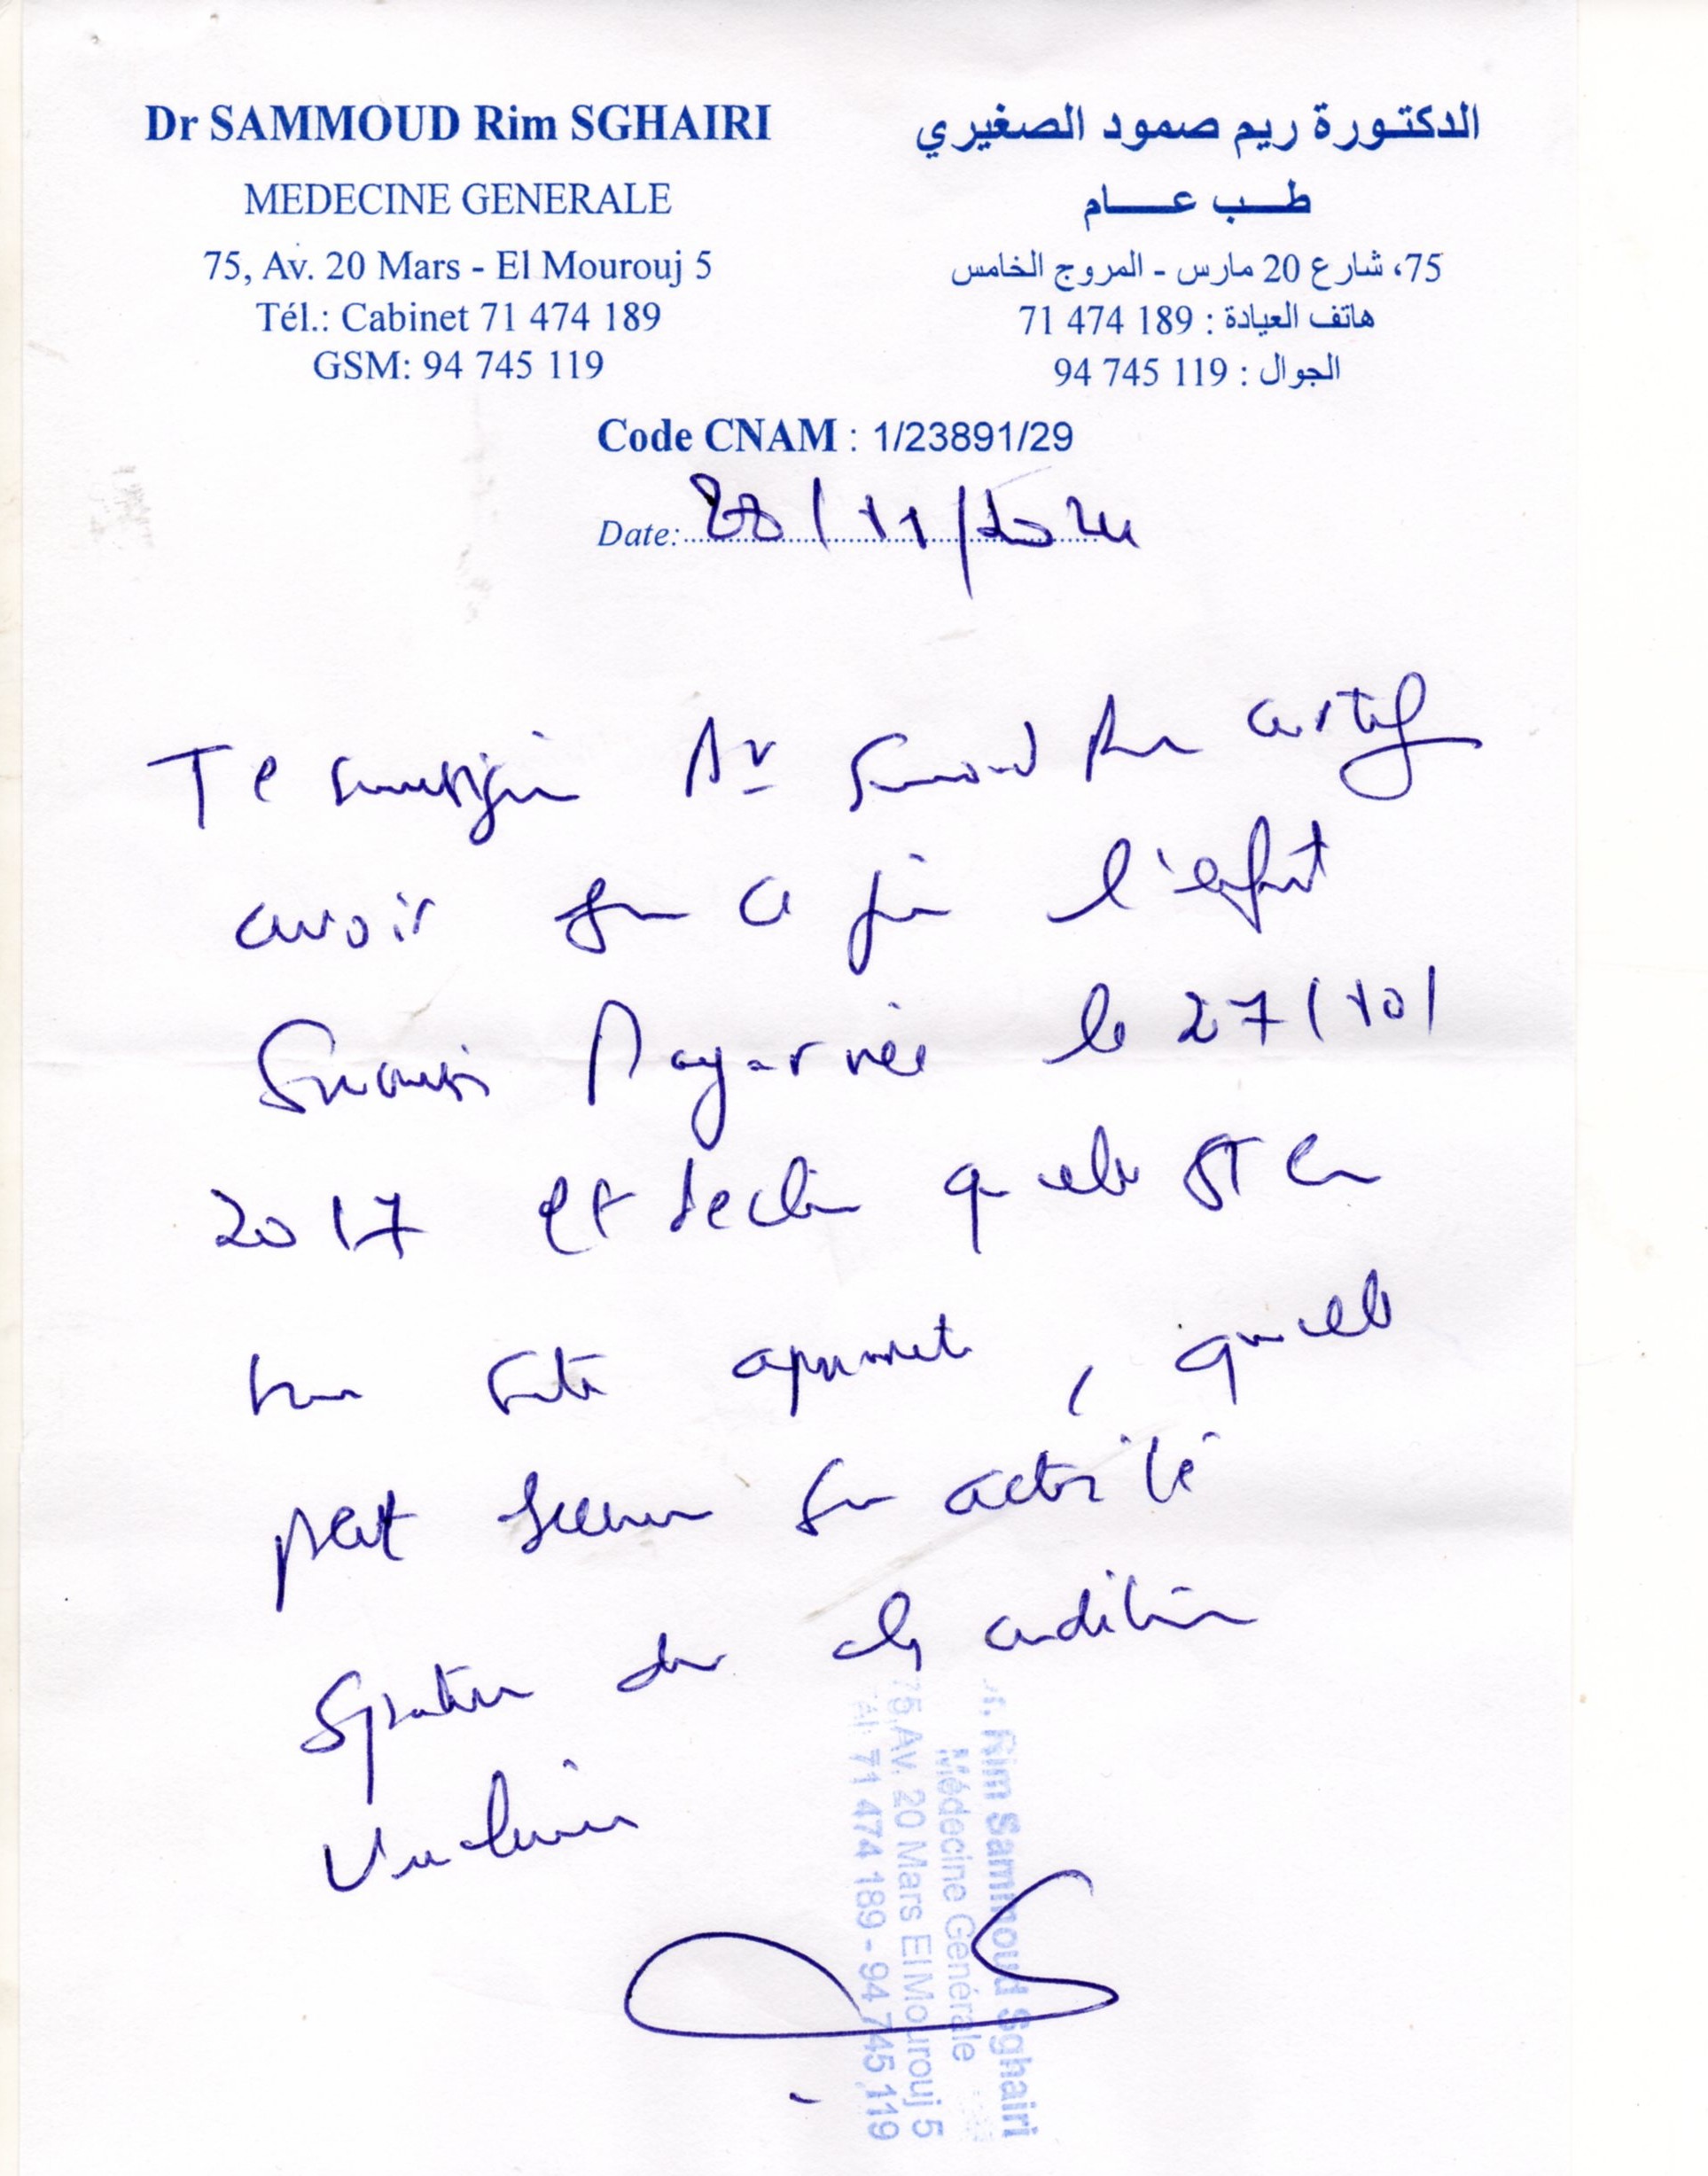 Dr SAMMOUD Rim SGHAIRI
MEDECINE GENERALE
75, Av. 20 Mars - El Mourouj 5
Tél.: Cabinet 71 474 189
GSM: 94 745 119
الدكتورة ريم صمود الصغيري
طب عام
75، شارع 20 مارس - المروج الخامس
هاتف العيادة : 71 474 189
الجوال : 94 745 119
Code CNAM : 1/23891/29
Date: /11/2024
Je soussigné Dr certifie
avoir ce jour l'enfant
née le 27/10/
2017 et déclare qu'elle est en
bonne santé apparente, qu'elle
peut exercer son activité
sportive dans les conditions
Rim Sammoud Sghairi
Médecine Générale
75, Av. 20 Mars El Mourouj 5
Tél: 71 474 189 - 94 745 119